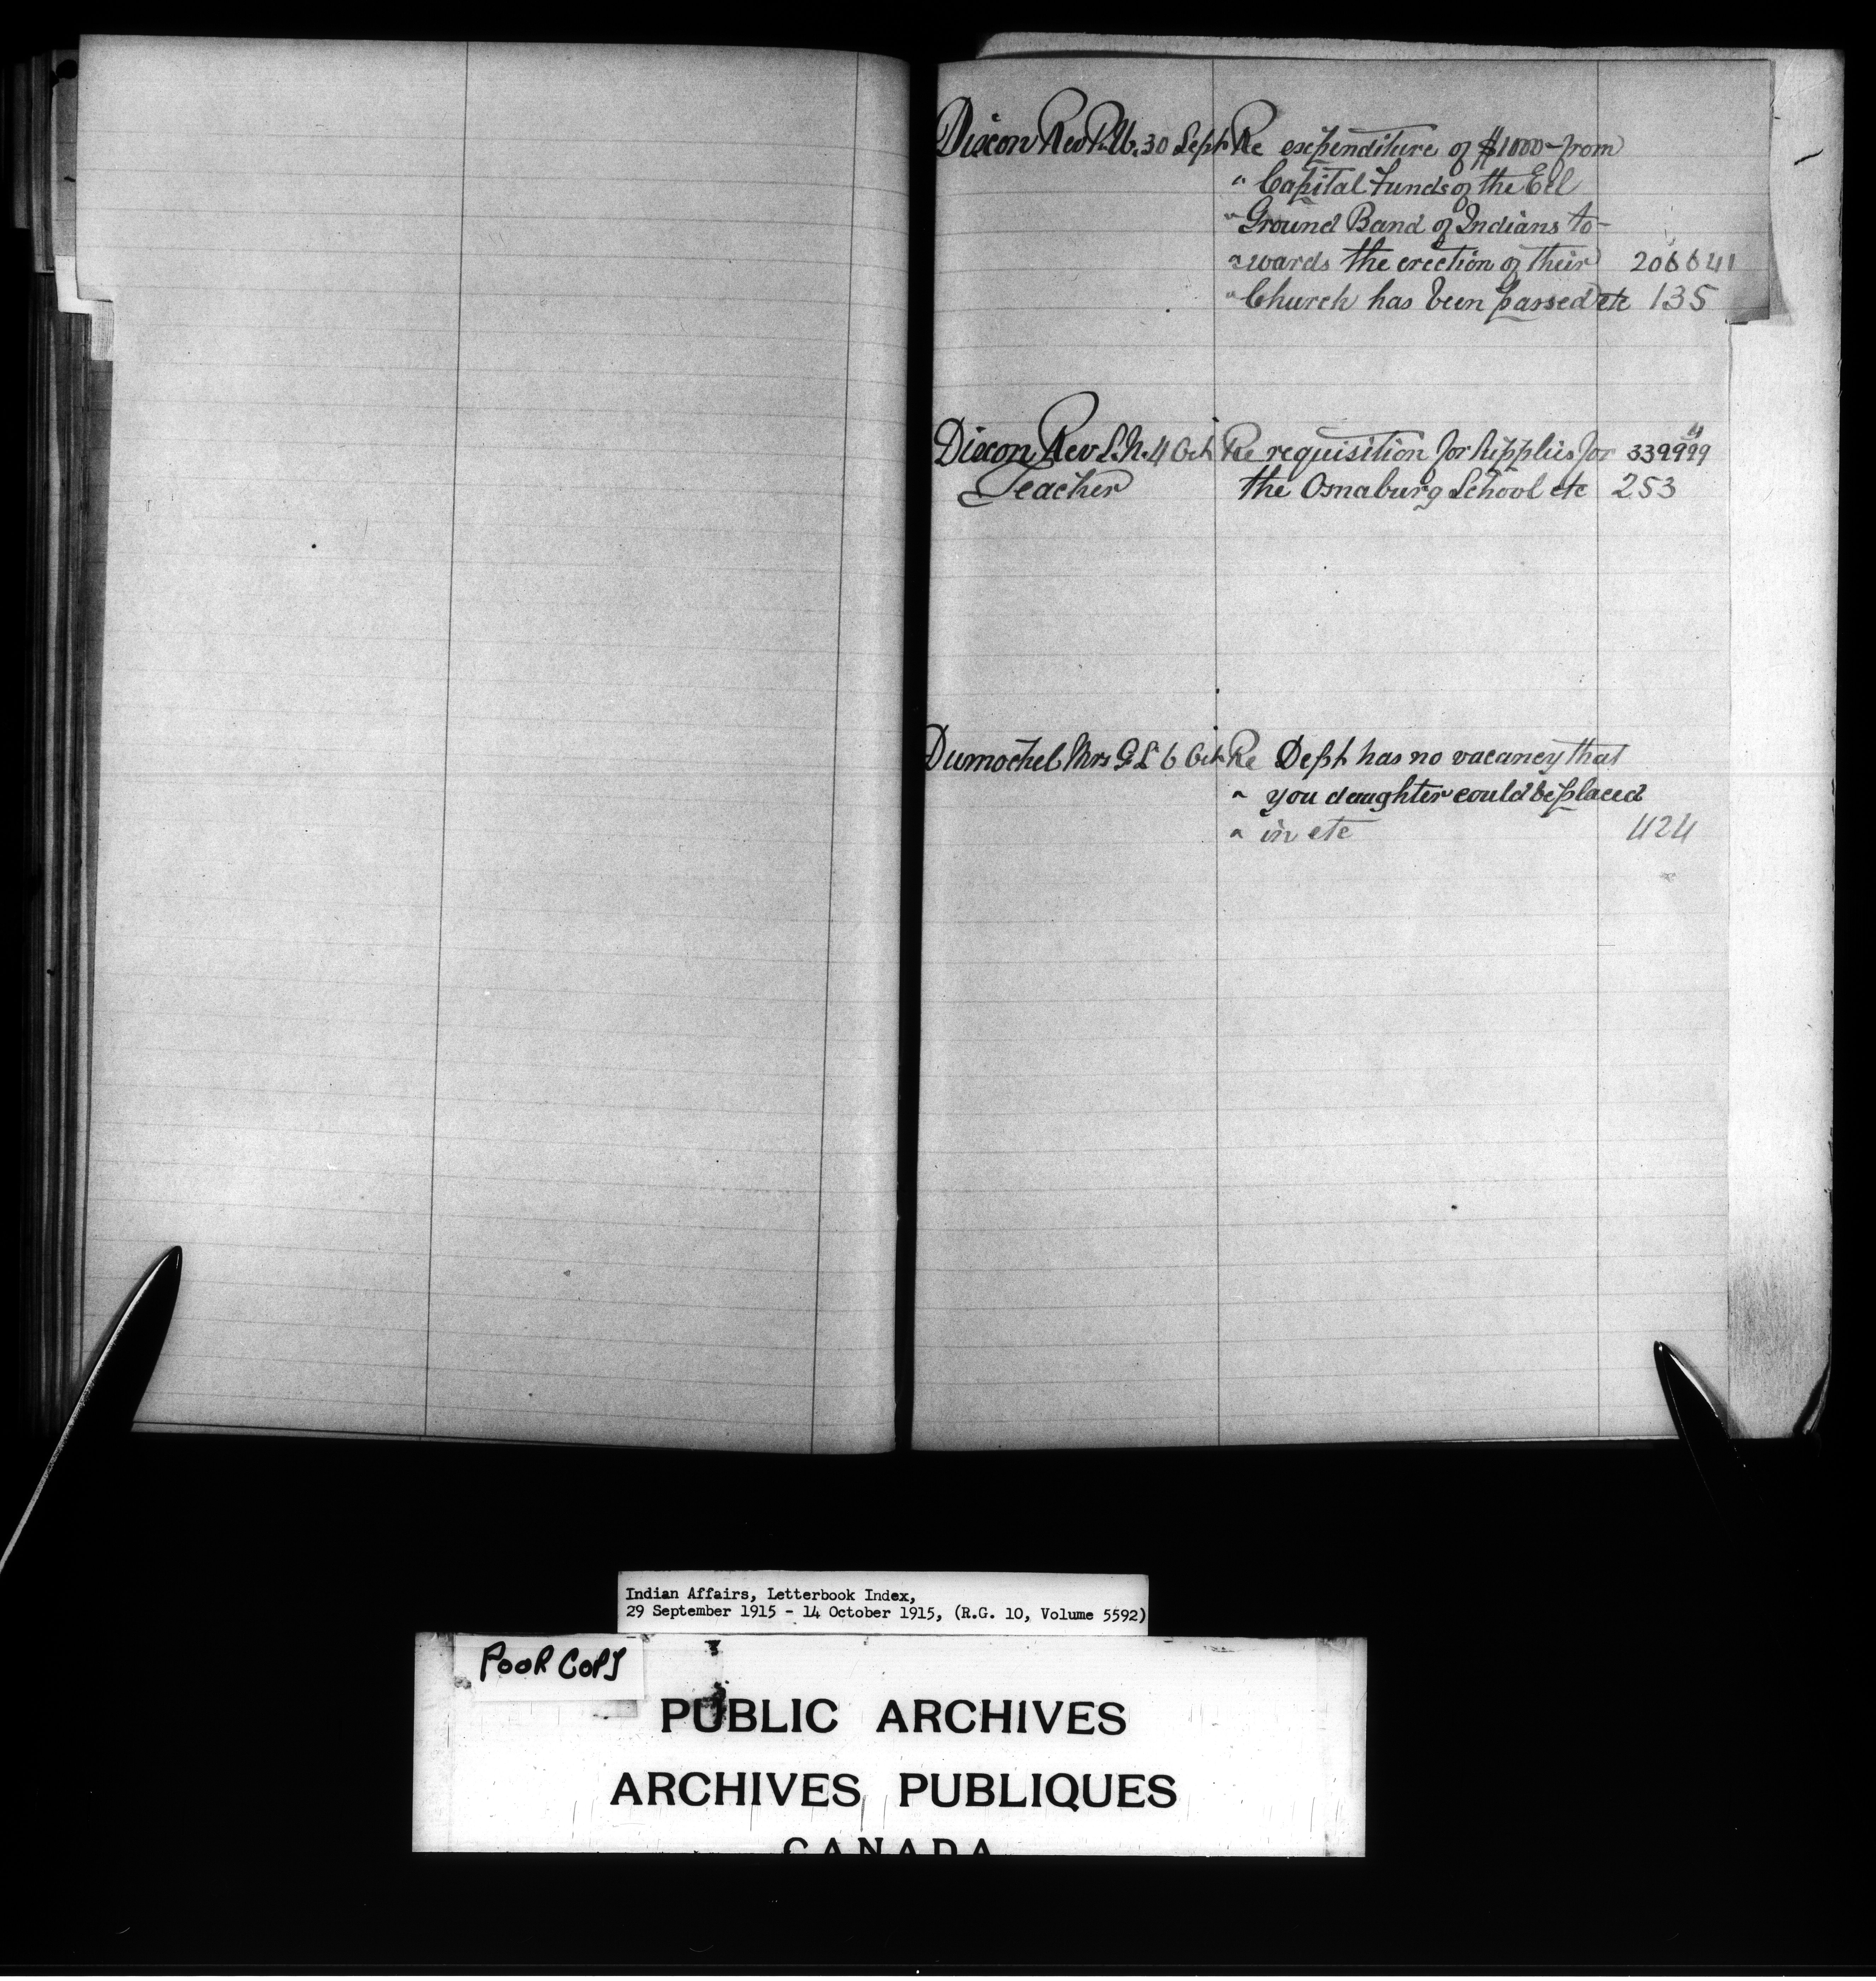 Dixon Rev P. W. 30 Sept Re expenditure of $1000- from
" Capital Funds of the Eel
" Ground Band of Indians to-
" wards the erection of their 206641
" Church has been passed etc 135
Dixon Rev L. N. 4 Oct Re requisition for supplies for 339999
Teacher the Osnaburg School etc 253
Dumochel Mrs G. L 6 Oct Re Dept has no vacancy that
" you daughter could be placed
" in etc 424
Indian Affairs, Letterbook Index,
29 September 1915 - 14 October 1915, (R.G. 10, Volume 5592)
POOR COPY
PUBLIC ARCHIVES
ARCHIVES PUBLIQUES
CANADA